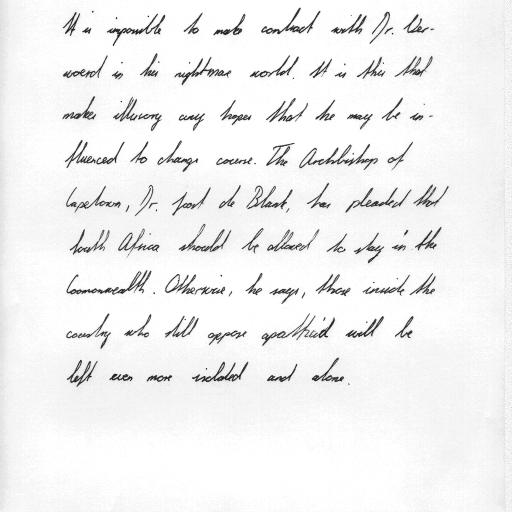 It is impossible to make contact with Dr. Ver-
woerd in his nightmare world. It is this that
makes illusory any hopes that he may be in-
fluenced to change course. The Archbishop of
Capetown, Dr. Joost de Blank, has pleaded that
South Africa should be allowed to stay in the
Commonwealth. Otherwise, he says, those inside the
country who still oppose apartheid will be
left even more isolated and alone.